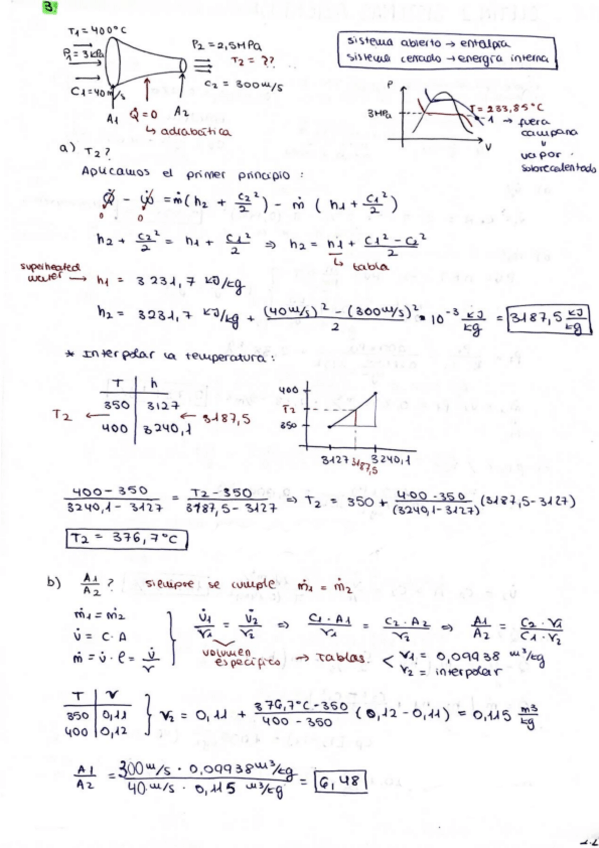 3.
T1 = 400°C
P1 = 3 kPa
C1 = 40 m/s
A1
Q̇ = 0
↳ adiabática
A2
P2 = 2,5 MPa
T2 = ??
C2 = 300 m/s
sistema abierto → entalpía
sistema cerrado → energía interna
P
3MPa
T = 233,85°C
1 → fuera
campana
vapor
sobrecalentado
V
a) T2?
Aplicamos el primer principio:
Q̇ - ẇ = ṁ (h2 + C2²/2) - ṁ (h1 + C1²/2)
0 0
h2 + C2²/2 = h1 + C1²/2 ⇒ h2 = h1 + (C1² - C2²)/2
↳ tabla
superheated
water → h1 = 3231,7 KJ/kg
h2 = 3231,7 KJ/kg + ((40 m/s)² - (300 m/s)²)/2 · 10⁻³ KJ/kg = 3187,5 KJ/kg
* Interpolar la temperatura:
T h
350 3127
T2 ← ← 3187,5
400 3240,1
400
T2
350
3127 3187,5 3240,1
(400-350)/(3240,1-3127) = (T2-350)/(3187,5-3127) ⇒ T2 = 350 + (400-350)/(3240,1-3127) (3187,5-3127)
T2 = 376,7°C
b) A1/A2? siempre se cumple ṁ1 = ṁ2
ṁ1 = ṁ2
v̇ = C·A
ṁ = v̇·ρ = v̇/v
v̇1/v1 = v̇2/v2 ⇒ C1·A1/v1 = C2·A2/v2 ⇒ A1/A2 = C2·v1/C1·v2
volumen
específico → Tablas. < v1 = 0,09938 m³/kg
v2 = interpolar
T v
350 0,11
400 0,12
v2 = 0,11 + (376,7°C-350)/(400-350) (0,12-0,11) = 0,115 m3/kg
A1/A2 = (300 m/s · 0,09938 m³/kg)/(40 m/s · 0,115 m³/kg) = 6,48